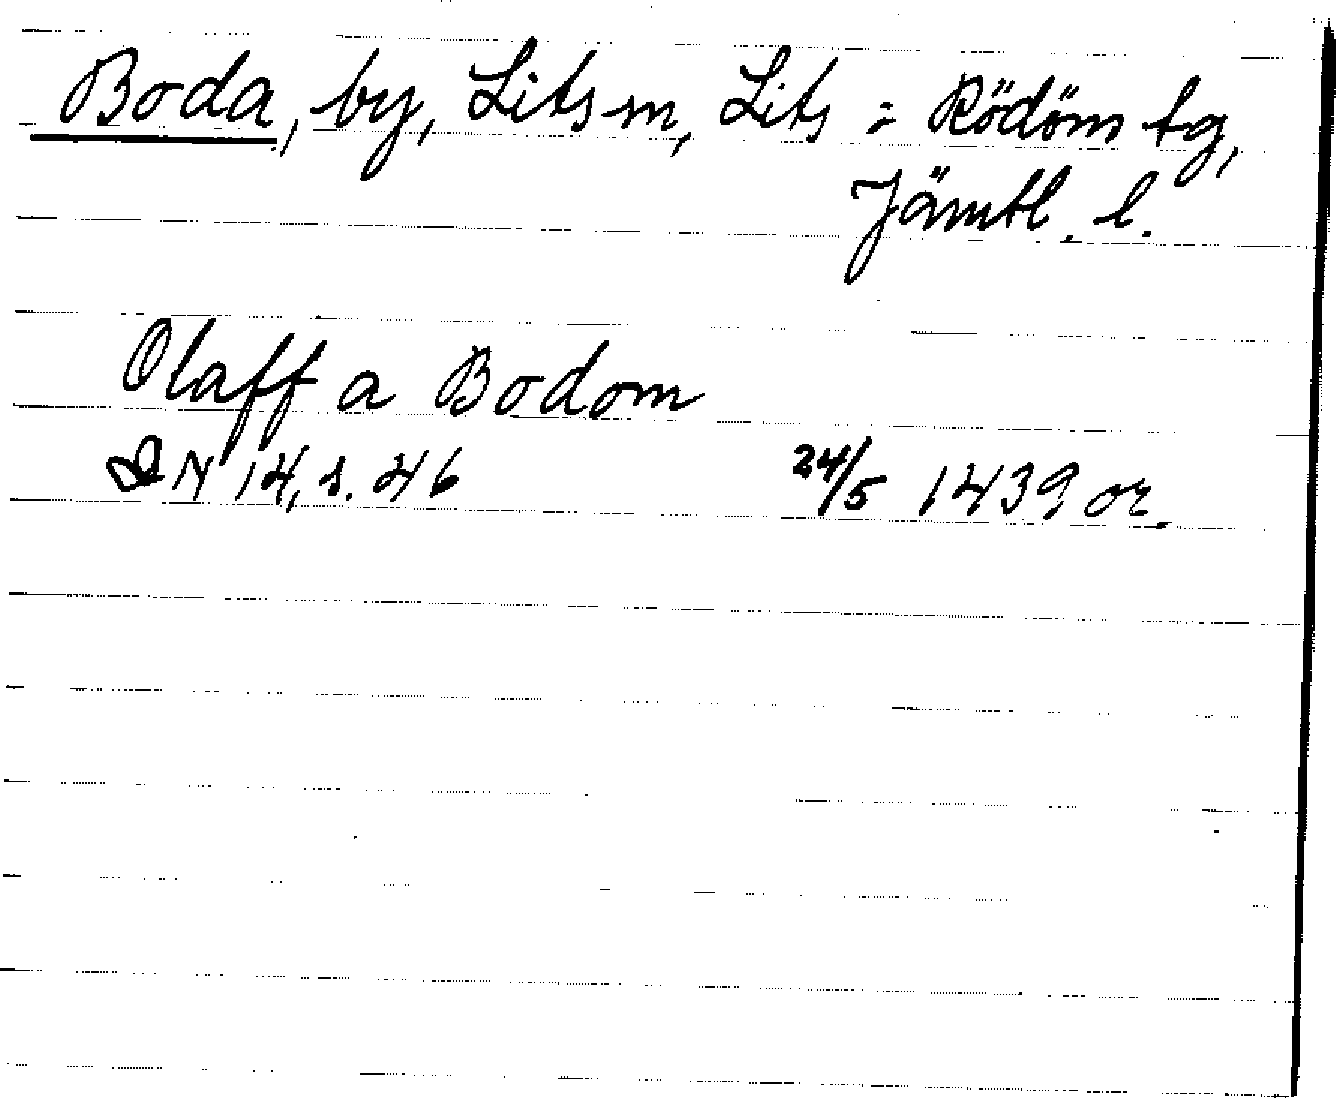 Boda, by, Lits sn, Lits : Rödöns tg,
Jämtl. l.
Olaff a Bodom
DN 14, s. 46 24/5 1439 or.